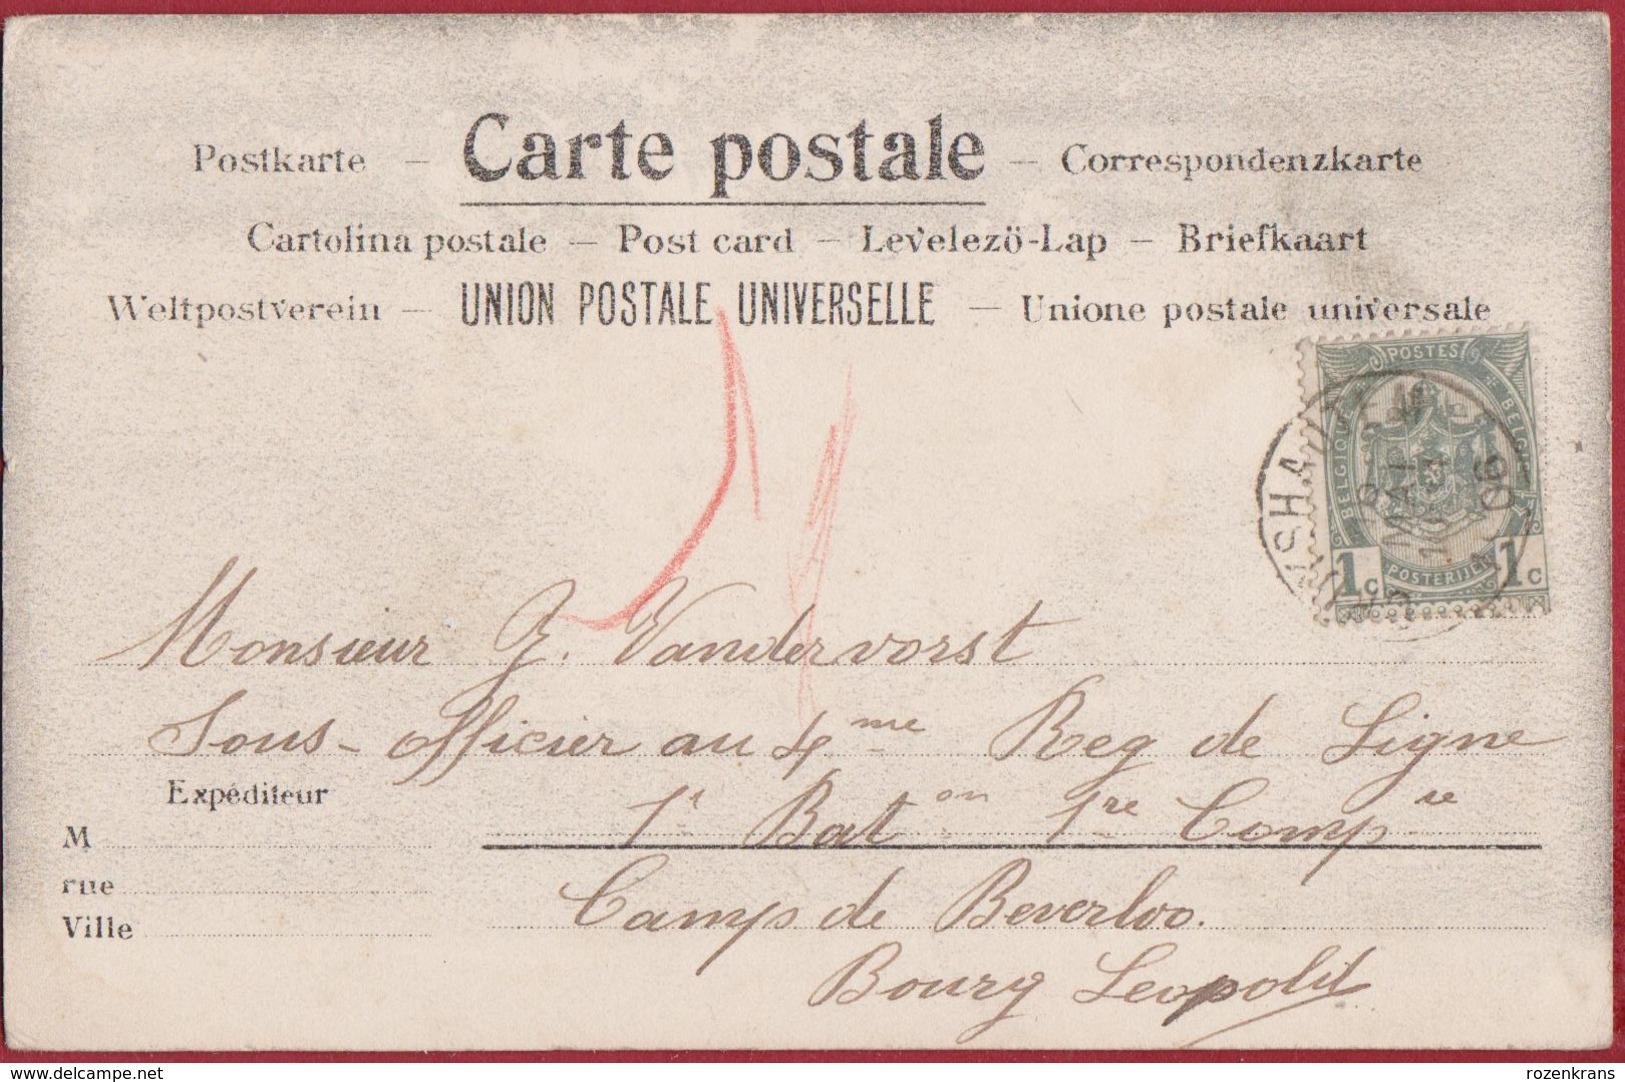 Postkarte — Carte postale — Correspondenzkarte
Cartolina postale — Post card — Levelezö-Lap — Briefkaart
Weltpostverein — UNION POSTALE UNIVERSELLE — Unione postale universale
POSTES
BELGIQUE BELGIE
POSTERIJEN
1c 1c
8 MAI
06
Monsieur J. Vandervorst
Sous-officier au 4me Reg de Ligne
Expéditeur
1r Baton 1re Compie
M
rue
Camp de Beverloo.
Ville
Bourg Leopold
delcampe.net
rozenkrans